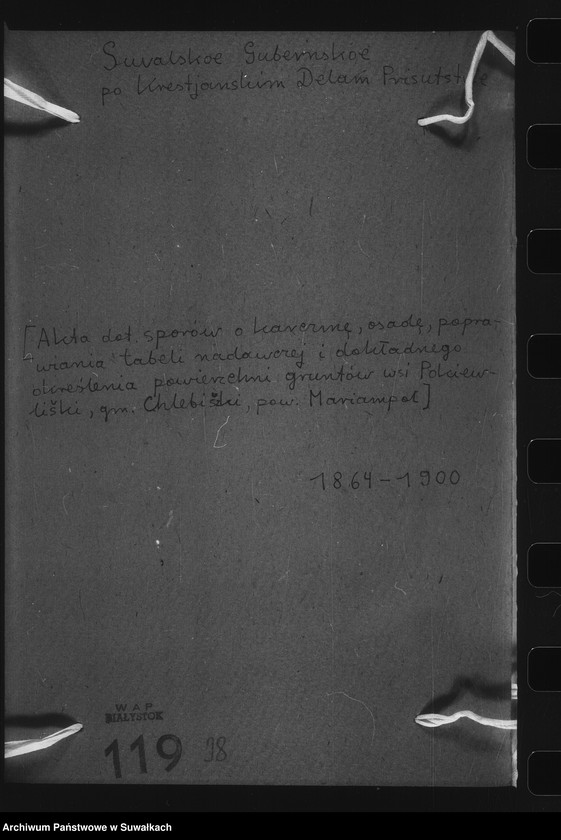 Suvalskoe Gubernskoe
po Krestjanskim Delam Prisutst
[Akta dot. sporów o karczmę, osadę, popra-
wiania tabeli nadawczej i dokładnego
określenia powierzchni gruntów wsi
liški, gm. Chlebiški, pow. Mariampol]
1864-1900
WAP
BIAŁYSTOK
119 98
Archiwum Państwowe w Suwałkach